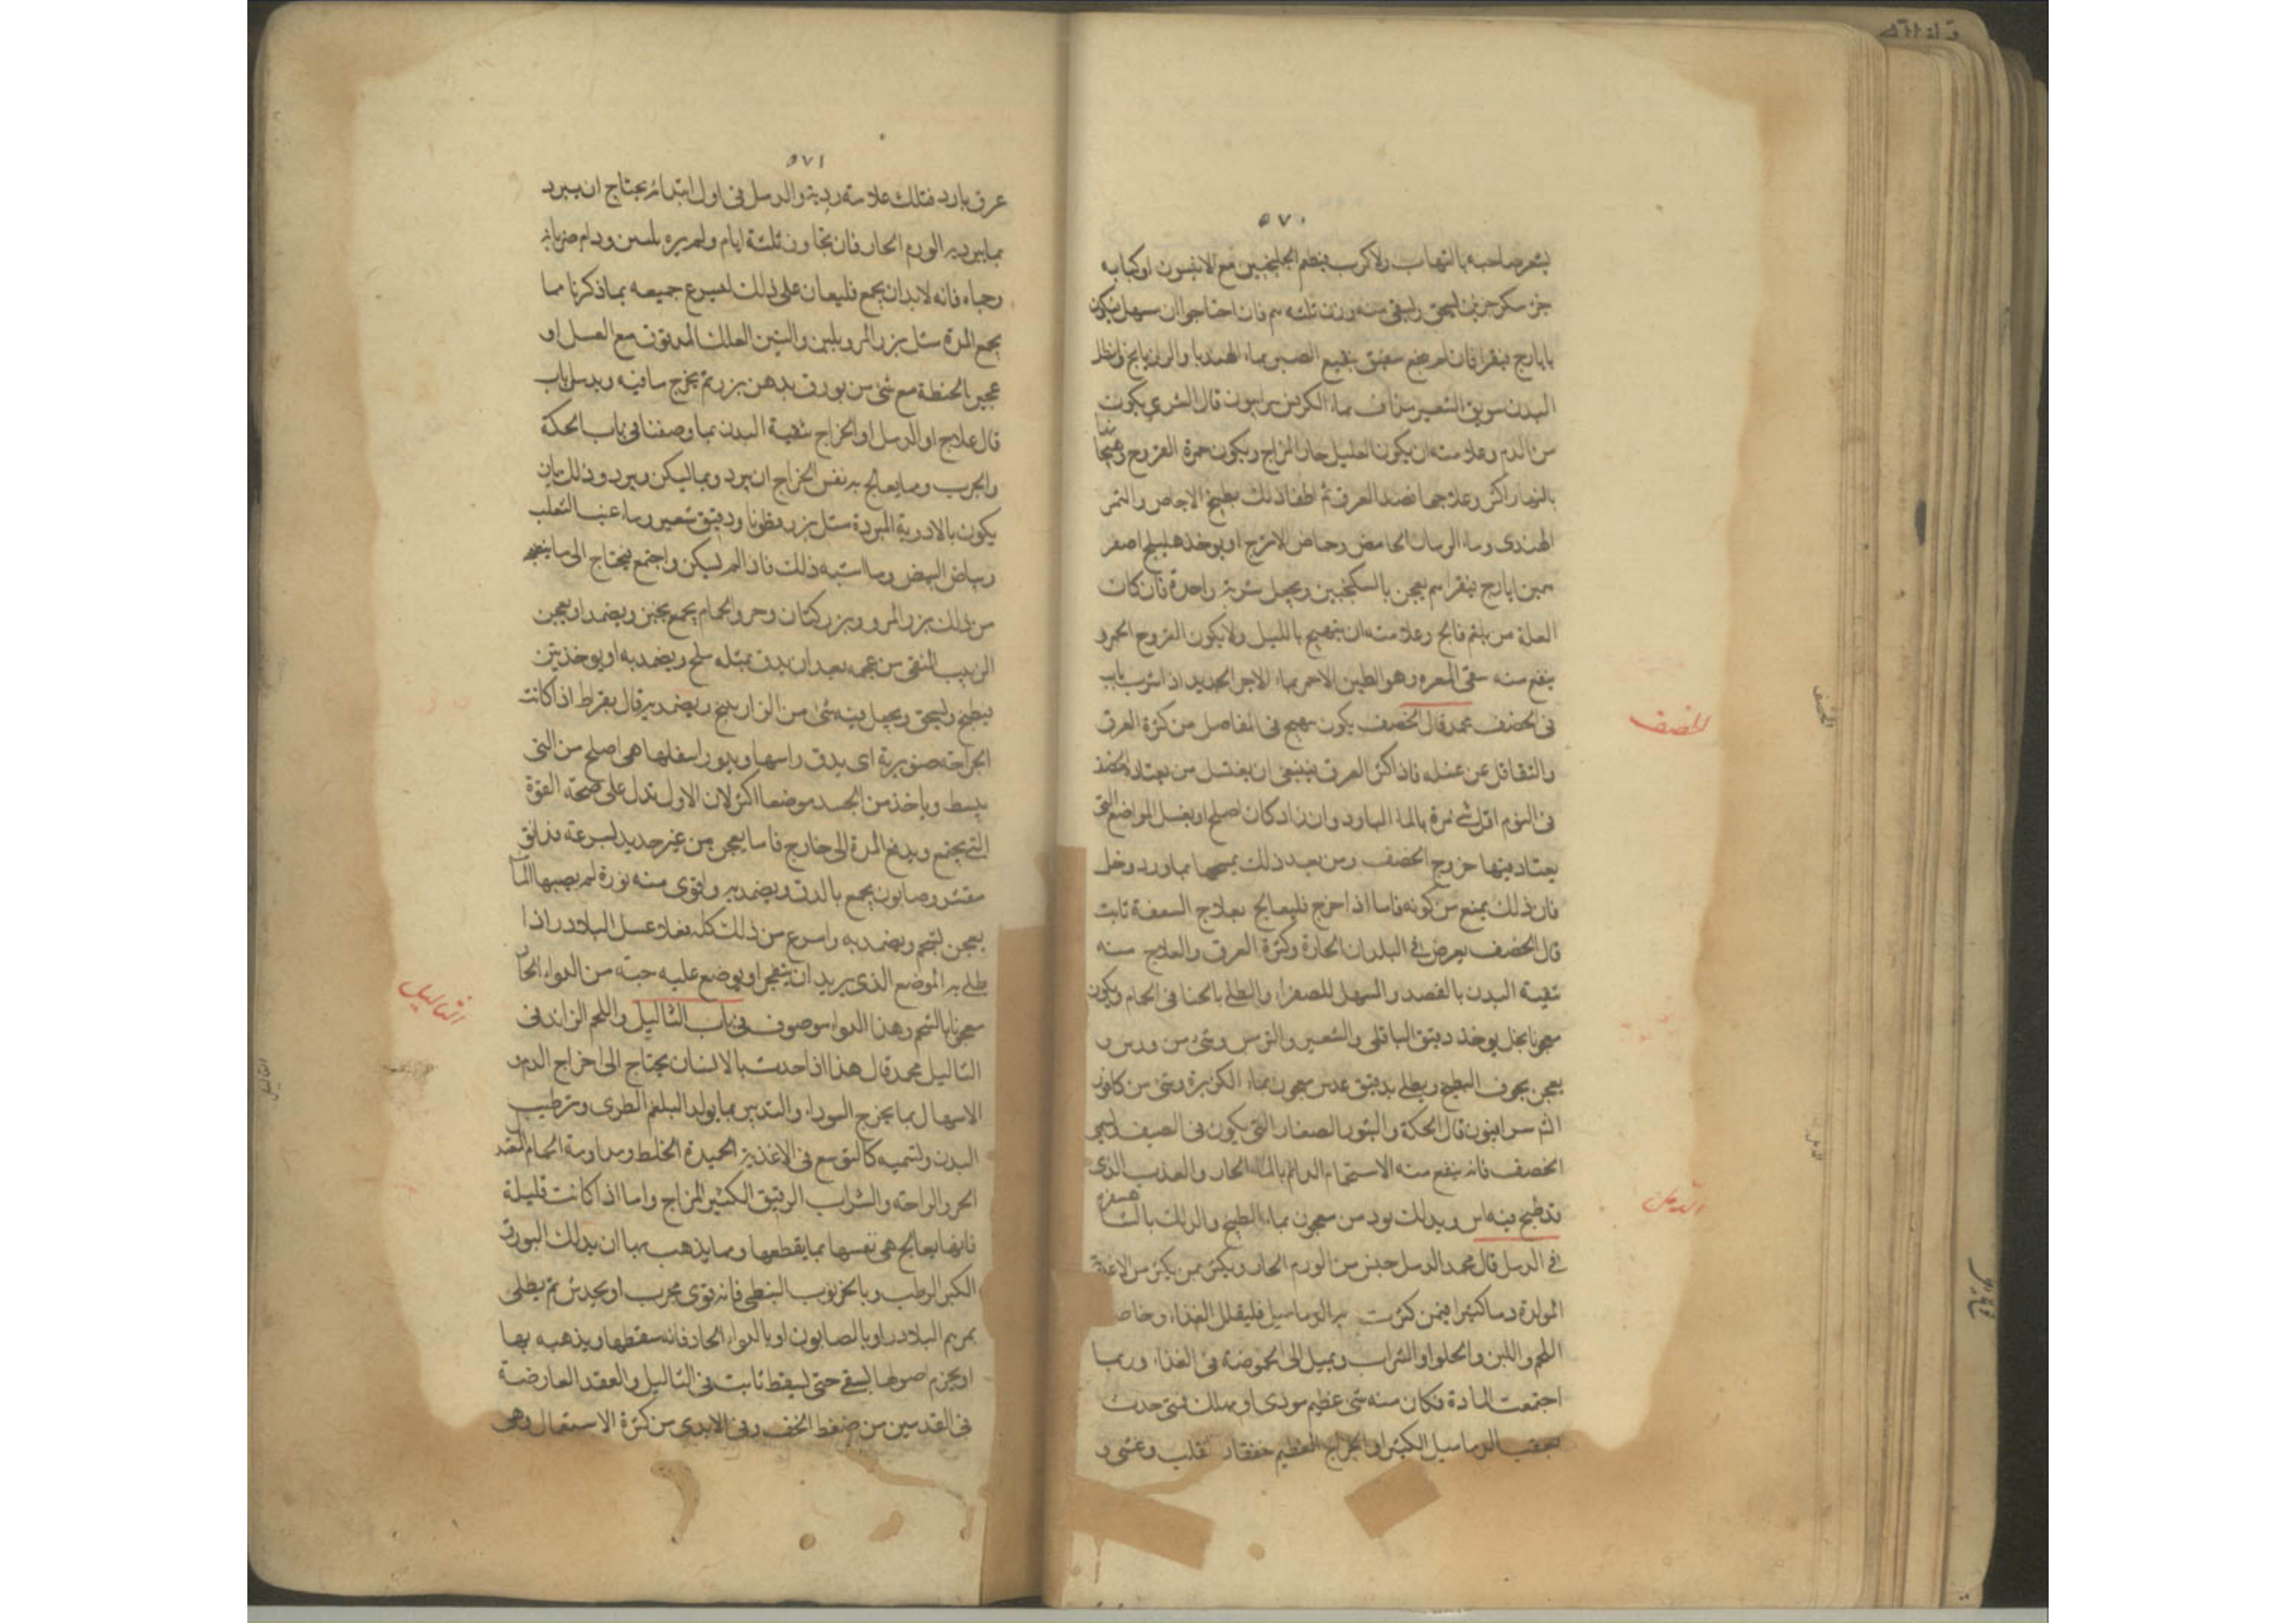 ٥٧٠
يشعر صاحبه بالتهاب ولا كرب فيطعم الجلنجبين مع الانيسون او كبابه
جزء سكر جزئين يسحق ويسقى منه وزن ثلثه م فان احتاجوا ان يسهل فيكون
بايارج فيقرا فان لم ينجع سقيتهم نقيع الصبر بماء الهندبا والرازيانج
البدن سويق الشعير بماء الكرفس سرابيون قال الشرى يكون
من الدم وعلامته ان يكون العليل حار المزاج ويكون حمرة القروح وهيجها
بالنهار اكثر وعلاجها فصد العرق ثم اطفا ذلك بطبيخ الاجاص والتمر
الهندى وماء الرمان الحامض وحماض الاترج او يوخذ هليلج اصفر
ايارج فيقرا يعجن بالسكنجبين ويجعل شربة واحدة فان كان
العلة من بلغم مالح وعلامته ان يهيج بالليل ولا يكون القروح الحمر و
ينفع منه سقى المغره وهو الطين الاحمر بماء الاجر الجديد اذا شرب باب
فى الحصف محمد قال الحصف يكون يهيج فى المفاصل من كثرة العرق
والتغافل عن غسله فاذا كثر العرق فينبغى ان يغتسل من يعتاده الحصف
فى اليوم اقل شئ مرة بالماء البارد وان زاد كان اصلح او يغسل المواضع التى
يعتاد فيها خروج الحصف ومن بعد ذلك يمسحها بماورد وخل
فان ذلك يمنع من كونه فاما اذا خرج فليعالج بعلاج السعفة ثابت
قال الحصف يعرض فى البلدان الحارة وكثرة العرق والعلاج منه
تنقية البدن بالفصد والمسهل للصفراء والطلى بالحنا فى الحمام ويكون
معجونا بخل يوخذ دقيق الباقلى والشعير والترمس وشئ من ورس و
يعجن بجوف البطيخ ويطلى بدقيق عدس معجون بماء الكزبرة وشئ من كافور
سرابيون قال الحكة والبثور الصغار التى يكون فى الصيف يسمى
الحصف فانه ينفع منه الاستحمام الدائم بالماء الحار والعذب الذى
قد طبخ فيه اس ويدلك بورس معجون بماء البطيخ والدلك بالنشا
فى الدمل قال محمد الدمل جنس من الورم الحار ويكثر بمن يكثر من الاغذية
المولدة دما كثيرا فيمن كثرت به الدماميل فليقلل الغذاء وخاصة
اللحم واللبن والحلوا والشراب ويميل الى الحموضة فى الغذاء وربما
اجتمعت المادة فكان منه شئ عظيم موذى او مهلك فمتى حدث
بعقب الدماميل الكثير او الخراج العظيم خفقان قلب وغشى و
الحصف
الدمل
٥٧١
عرق بارد فتلك علامة ردية والدمل فى اول ابتدائه يحتاج ان يبرد
بما يبرد به الورم الحار فان تجاوز ثلثة ايام ولم يره يلين ودام ضربانه
وحماه فانه لابد ان يجمع فليعان على ذلك ليسرع جمعه بما ذكرنا مما
يجمع المدة مثل بزر المرو بلبن والتين العلك المدقوق مع العسل او
عجين الحنطة مع شئ من بورق بدهن بزر ثم يخرج ما فيه ويدمل باب
قال علاج الدمل او الخراج تنقية البدن بما وصفنا فى باب الحكة
والجرب وما يعالج به نفس الخراج ان يبرد وبما يسكن ويبرد وذلك بان
يكون بالادوية المبردة مثل بزرقطونا ودقيق شعير وماء عنب الثعلب
وبياض البيض وما اشبه ذلك فاذا لم يسكن واجتمع فيحتاج الى ما يفجره
من ذلك بزر المرو وبزر كتان وخرو الحمام يجمع بخبز ويضمد او يعجن
الزبيب النقى من عجمه بعد ان يدق بمثله ملح ويضمد به او يوخذ تين
فيطبخ ويسحق ويجعل فيه شئ من الزراريح ويضمد به قال بقراط اذا كانت
الجراحة صنوبرية اى يدق راسها ويدور اسفلها هى اصلح من التى
يبسط وياخذ من الجسد موضعا اكثر لان الاول تدل على صحة القوة
التى يجمع ويدفع المدة الى خارج فاما
مقشر وصابون يجمع بالدق ويضمد به واقوى منه نورة لم يصبها الماء
يعجن بشحم ويضمد به واسرع من ذلك كله فعلا عسل البلادر اذا
طلى به الموضع الذى يريد ان يتفجر او يوضع عليه حبة من الدواء الحار
معجونا بالشحم وهذا الدواء موصوف فى باب الثاليل واللحم الزائد فى
الثاليل محمد قال هذا اذا حدث بالانسان يحتاج الى اخراج الدم و
الاسهال بما يخرج السوداء والتدبير بما يولد البلغم الطرى وترطيب
البدن وتسمينه كالتوسع فى الاغذية الحميدة الخلط ومداومة الحمام العذب
الحر والراحة والشراب الرقيق الكثير المزاج واما اذا كانت قليلة
فانها يعالج هى نفسها بما يقطعها ومما يذهب بها ان يدلك البورق
الكبر الرطب وبالخرنوب النبطى فانه قوى مجرب او يخدش ثم يطلى
بمرهم البلادر او بالصابون او بالدواء الحار فانه يسقطها ويذهب بها
او يحزم اصولها حتى يسقط ثابت فى الثاليل والعقد العارضة
فى القدمين من ضغط الخف وفى الايدى من كثرة الاستعمال وهى
الثاليل